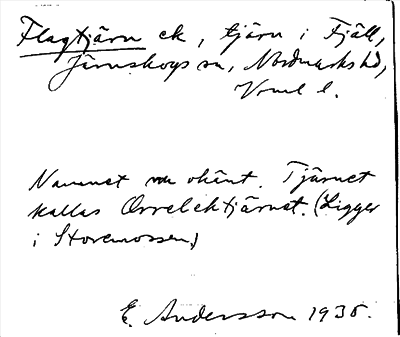 Flagtjärn ek, tjärn i Fjäll,
Järnskogs sn, Nordmarks hd,
Vrml l.
Namnet nu okänt. Tjärnet
kallas Orrelektjärnet. (Ligger
i Storemossen)
E. Andersson 1935.